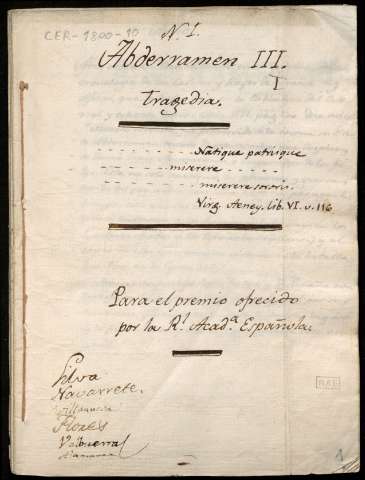 CER-1800-10
N. I.
Abderramen III.
I
Tragedia.
Natique patrisque
miserere
miserere sororis.
Virg. Aeney. lib. VI. v. 116
Para el premio ofrecido
por la R.l Acad.a Española.
Silva
Navarrete.
Villanueva
Flores
Valbuena
RAE
1